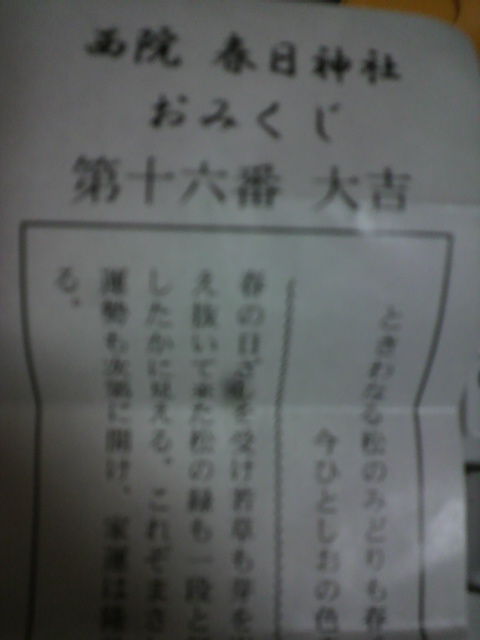 西院 春日神社
おみくじ
第十六番 大吉
ときわなる松のみどりも春
今ひとしおの色
春の日ざしを受け若草も芽を
え抜いて来た松の緑も一段と
したかに見える。これぞまさ
運勢も次第に開け、家運は隆
る。